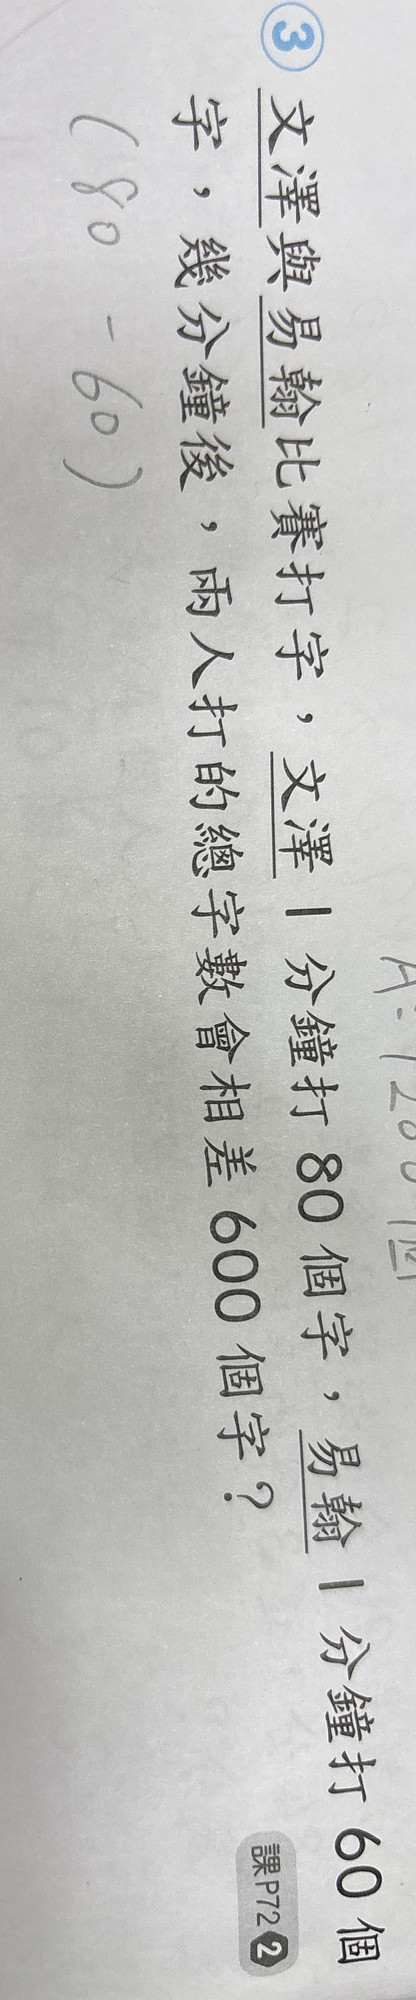 A: 1200個
③ 文澤與易翰比賽打字，文澤1分鐘打80個字，易翰1分鐘打60個
字，幾分鐘後，兩人打的總字數會相差600個字？
課P72 2
(80-60)